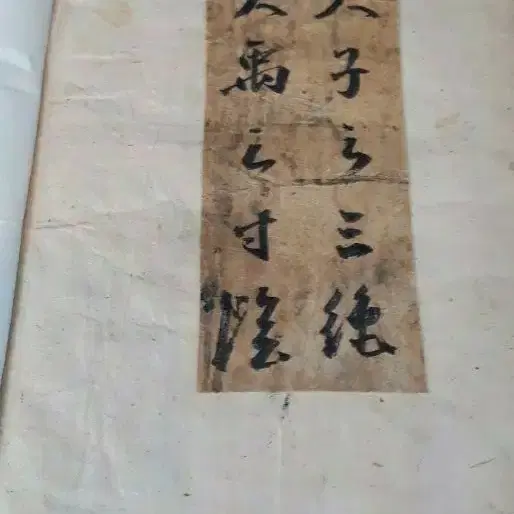 子之三絶
禹之寸陰